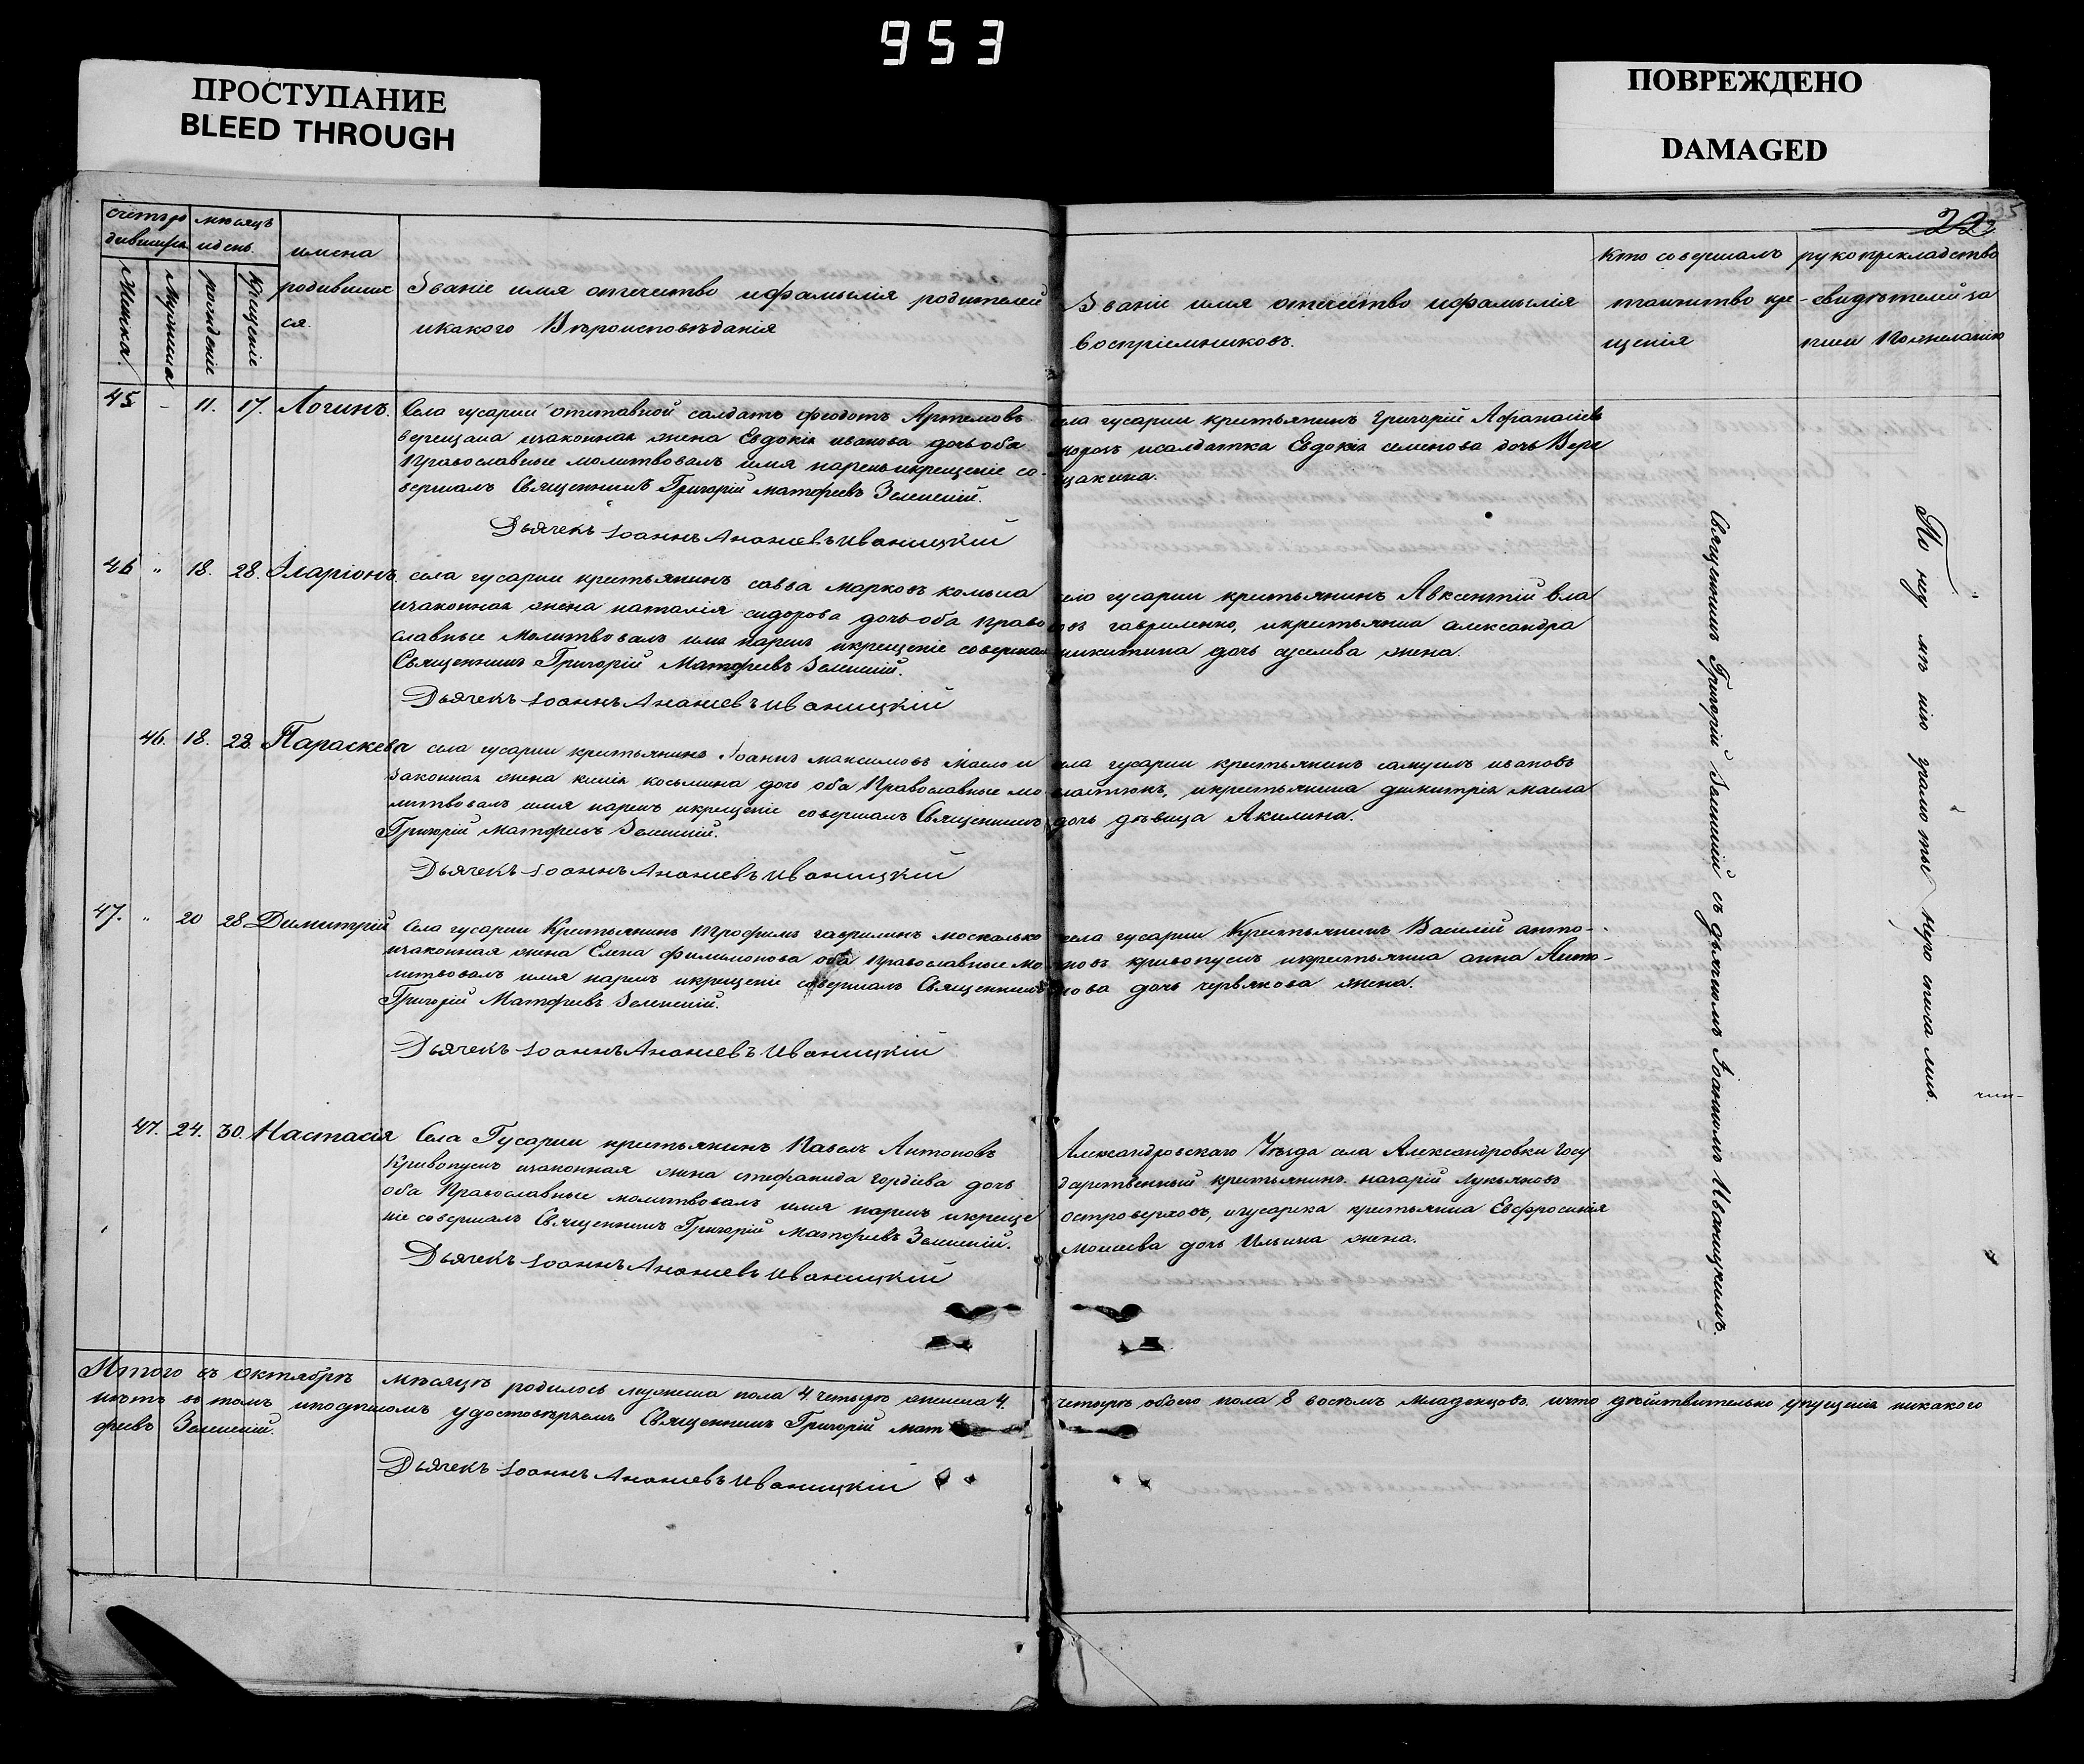 953
ПРОСТУПАНИЕ
BLEED THROUGH
ПОВРЕЖДЕНО
DAMAGED
195
22
счетъ ро
дившихся
мѣсяцъ
и день.
имена
родившие
ся.
Мужска.
Женска
рожденіе
крещеніе
Званіе имя отечество ифамылія родителей
икакого Вѣроисповѣданія
Званіе имя отечество ифамылія
воспріемниковъ.
Кто совершалъ
таинство кре-
щенія
рукоприкладство
свидѣтелей за
писи По желанію
45 - 11. 17. Логинъ.
Села гусарки отставной солдатъ Феодотъ Артемовъ
Верещака изаконная жена Евдокія иванова дочь оба
Православные молитвовалъ имя нарекъ икрещеніе со-
вершалъ Священникъ Григорій матфеевъ Зеленскій.
Дьячекъ Іоаннъ Ананіевъ Иваницкій
села гусарки крестьянинъ Григорій Афанасіевъ
исолдатка Евдокія семенова дочь Вере
щакина.
46 " 18. 28. Іларіонъ.
села гусарки крестьянинъ савва марковъ
изаконная жена наталія сидорова дочь оба право
славные Молитвовалъ имя нарекъ икрещеніе совершал
Священникъ Григорій Матфеевъ Зеленскій.
Дьячекъ Іоаннъ Ананіевъ Иваницкій
села гусарки крестьянинъ Авксентій вла
совъ гавриленко, икрестьянка александра
никитина дочь жена.
46. 18. 28. Параскева
села гусарки крестьянинъ Іоаннъ максимовъ Масло и
законная жена ксенія косьмина дочь оба Православные мо
литвовалъ имя нарекъ икрещеніе совершалъ Священникъ
Григорій матфеевъ Зеленскій.
Дьячекъ Іоаннъ Ананіевъ Иваницкій
села гусарки крестьянинъ самуилъ ивановъ
икрестьянина димитрія масла
дочь дѣвица Акилина.
47. " 20 28 Димитрій
Села гусарки Крестьянинъ трофимъ гавриловъ москалько
изаконная жена Елена филимонова оба православные мо
литвовалъ имя нарекъ икрещеніе совершалъ Священникъ
Григорій Матфеевъ Зеленскій.
Дьячекъ Іоаннъ Ананіевъ Иваницкій
села гусарки Крестьянинъ Василій анто-
новъ кривопускъ икрестьянка анна Анто-
нова дочь червякова жена.
47. 24. 30. Настасія
Села Гусарки крестьянинъ Павелъ Антоновъ
Кривопускъ изаконная жена стефанида гордіева дочь
оба Православные молитвовалъ имя нарекъ икреще
ніе совершалъ Священникъ Григорій Матфеевъ Зеленскій.
Дьячекъ Іоаннъ Ананіевъ Иваницкій
Александровскаго Уѣзда села Александровки Госу
дарственный крестьянинъ назарій Лукьяновъ
островерховъ, игусарка крестьянка Евфросинія
Моисеева дочь Ильина жена.
Священникъ Григорій Зеленскій съ дьячкомъ Іоанномъ Иваницкимъ.
По неу мѣ нію грамо ты него списа лись.
Итого въ октябрѣ мѣсяцѣ родилось мужеска пола 4 четыре женска 4. четыре обоего пола 8 восемъ младенцовъ. ичто дѣйствительно упущенія никакого
нѣтъ въ томъ иподписомъ удостовѣряемъ Священникъ Григорій мат
феевъ Зеленскій.
Дьячекъ Іоаннъ Ананіевъ Иваницкій